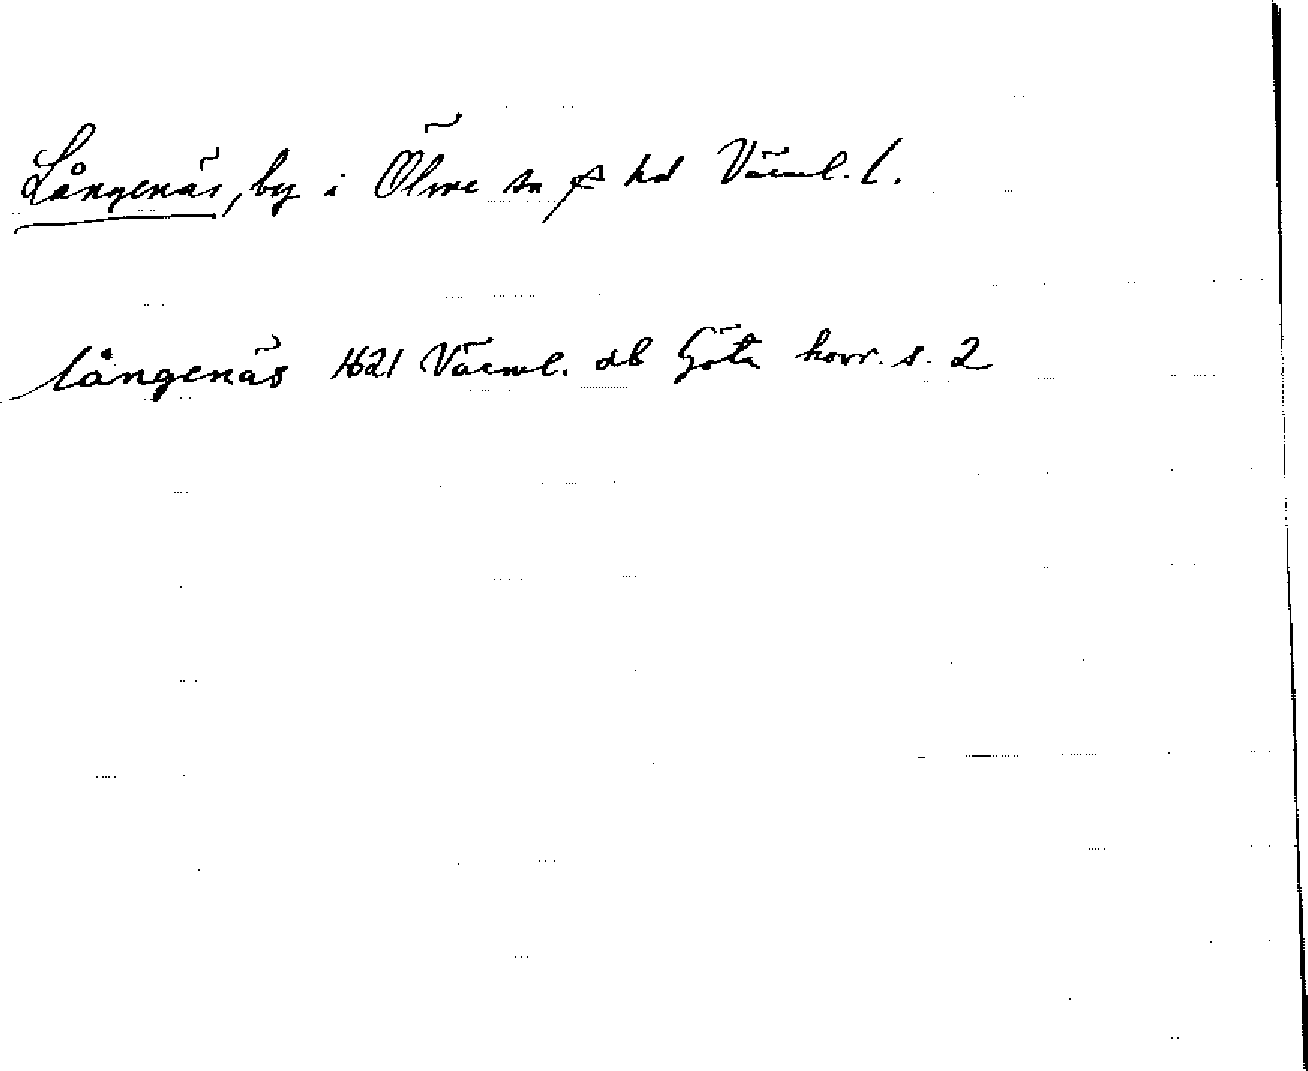 Långenäs, by i Ölme sn o hd Värml. l.
långenäs 1621 Värml. db Göta hovr. s. 2